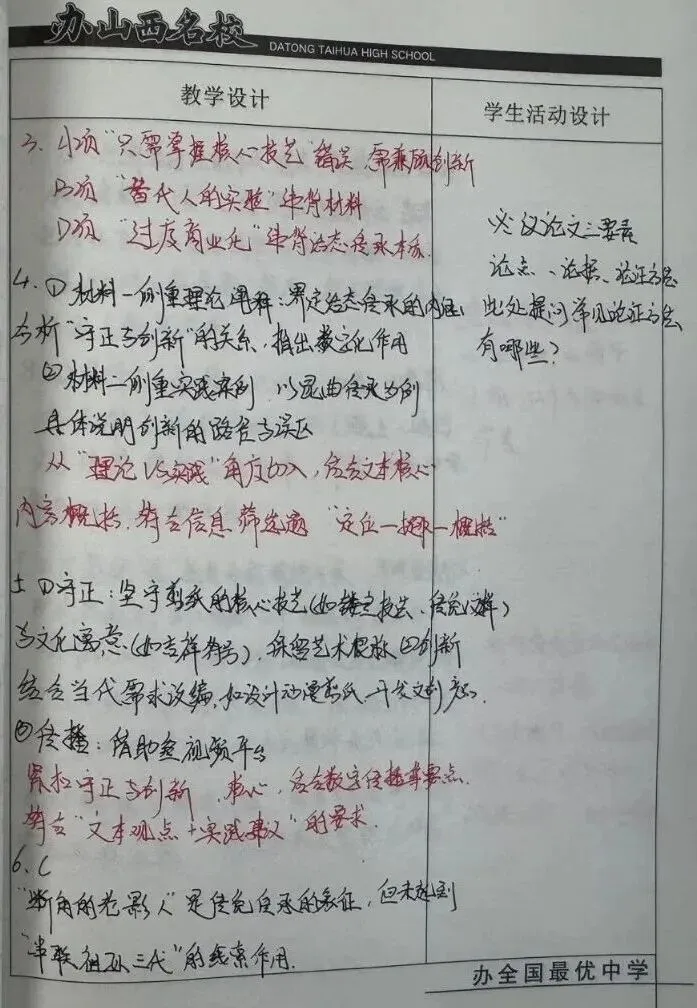 办山西名校
DATONG TAIHUA HIGH SCHOOL
教学设计
学生活动设计
3. A项"只需掌握核心技艺"错误,需兼顾创新
B项"替代人的实验"与材料
D项"过度商业化"违背活态传承本质.
4. ①材料一侧重理论阐释:界定活态传承的内涵,
分析"守正与创新"的关系,指出数字化作用
②材料二侧重实践案例,以昆曲传承为例
具体说明创新的路径与误区
从"理论VS实践"角度切入,结合文本核心
内容概括,符合信息筛选题"定位—提取—概括"
5 ①守正:坚守剪纸的核心技艺(如 技法、传统纹样)
与文化寓意(如吉祥符号),保留艺术根脉 ②创新
结合当代需求改编,如设计动漫剪纸、开发文创产品.
③传播:借助短视频平台
紧扣守正与创新 核心,结合数字传播 要点.
符合"文本观点+实践建议"的要求.
6. C
"断角的老影人"是传统传承的象征,但未起到
"串联祖孙三代"的线索作用.
议论文三要素
论点、论据、论证方法
此处提问常见论证方法
有哪些?
办全国最优中学